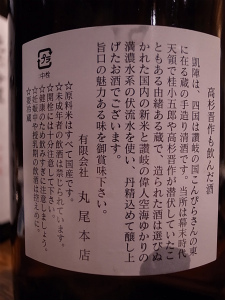 高杉晋作も飲んだ酒
凱陣は、四国は讃岐の国こんぴらさんの東
に在る蔵の手造り清酒です。当所は幕末時代
天領で桂小五郎や高杉晋作が潜伏していたこ
ともある由緒ある蔵で、造られた酒は選びぬ
かれた国内の新米と讃岐の偉人空海ゆかりの
満濃水系の伏流水を使い、丹精込めて醸し上
げたお酒でございます。
旨口の魅力ある味を御賞味下さい。
有限会社 丸尾本店
☆原料米はすべて国産です。
☆未成年者の飲酒は禁じられています。
☆開栓には十分注意して下さい。
☆健康のため飲みすぎに注意しましょう。
☆妊娠中や授乳期の飲酒は控えめに。
☆要冷蔵
プラ
中栓